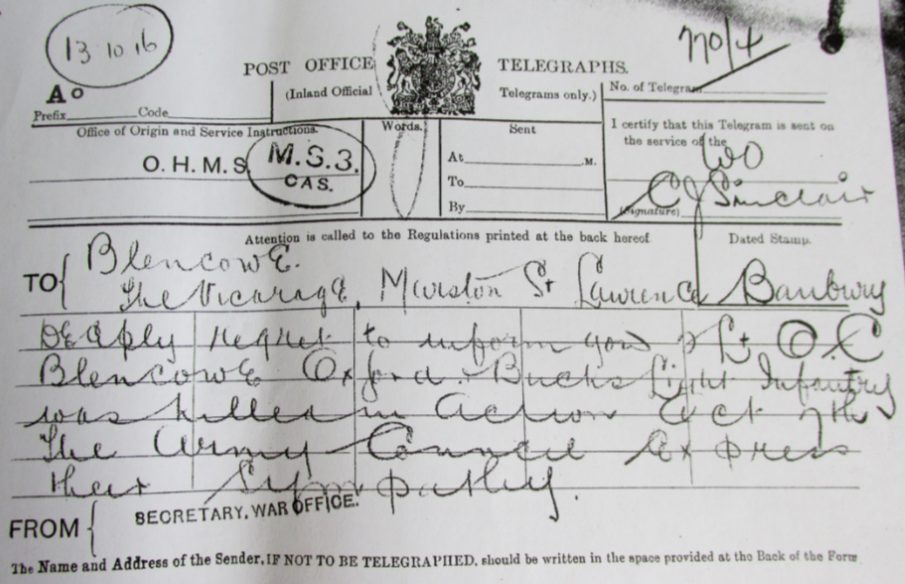 13 10 16
770/4
POST OFFICE TELEGRAPHS.
(Inland Official Telegrams only.)
No. of Telegram
A°
Prefix Code
Office of Origin and Service Instructions.
Words.
Sent
I certify that this Telegram is sent on
the service of the
WO
O.H.M.S.
M.S.3.
CAS.
At M.
To
By
C J Sinclair
(Signature)
Attention is called to the Regulations printed at the back hereof.
Dated Stamp.
TO Blencowe.
The Vicarage, Marston St Lawrence Banbury
Deeply regret to inform you Lt O.C
Blencowe Oxford & Bucks Light Infantry
was killed in action Oct 7th
The Army Council express
their sympathy.
FROM SECRETARY, WAR OFFICE.
The Name and Address of the Sender, IF NOT TO BE TELEGRAPHED, should be written in the space provided at the Back of the Form